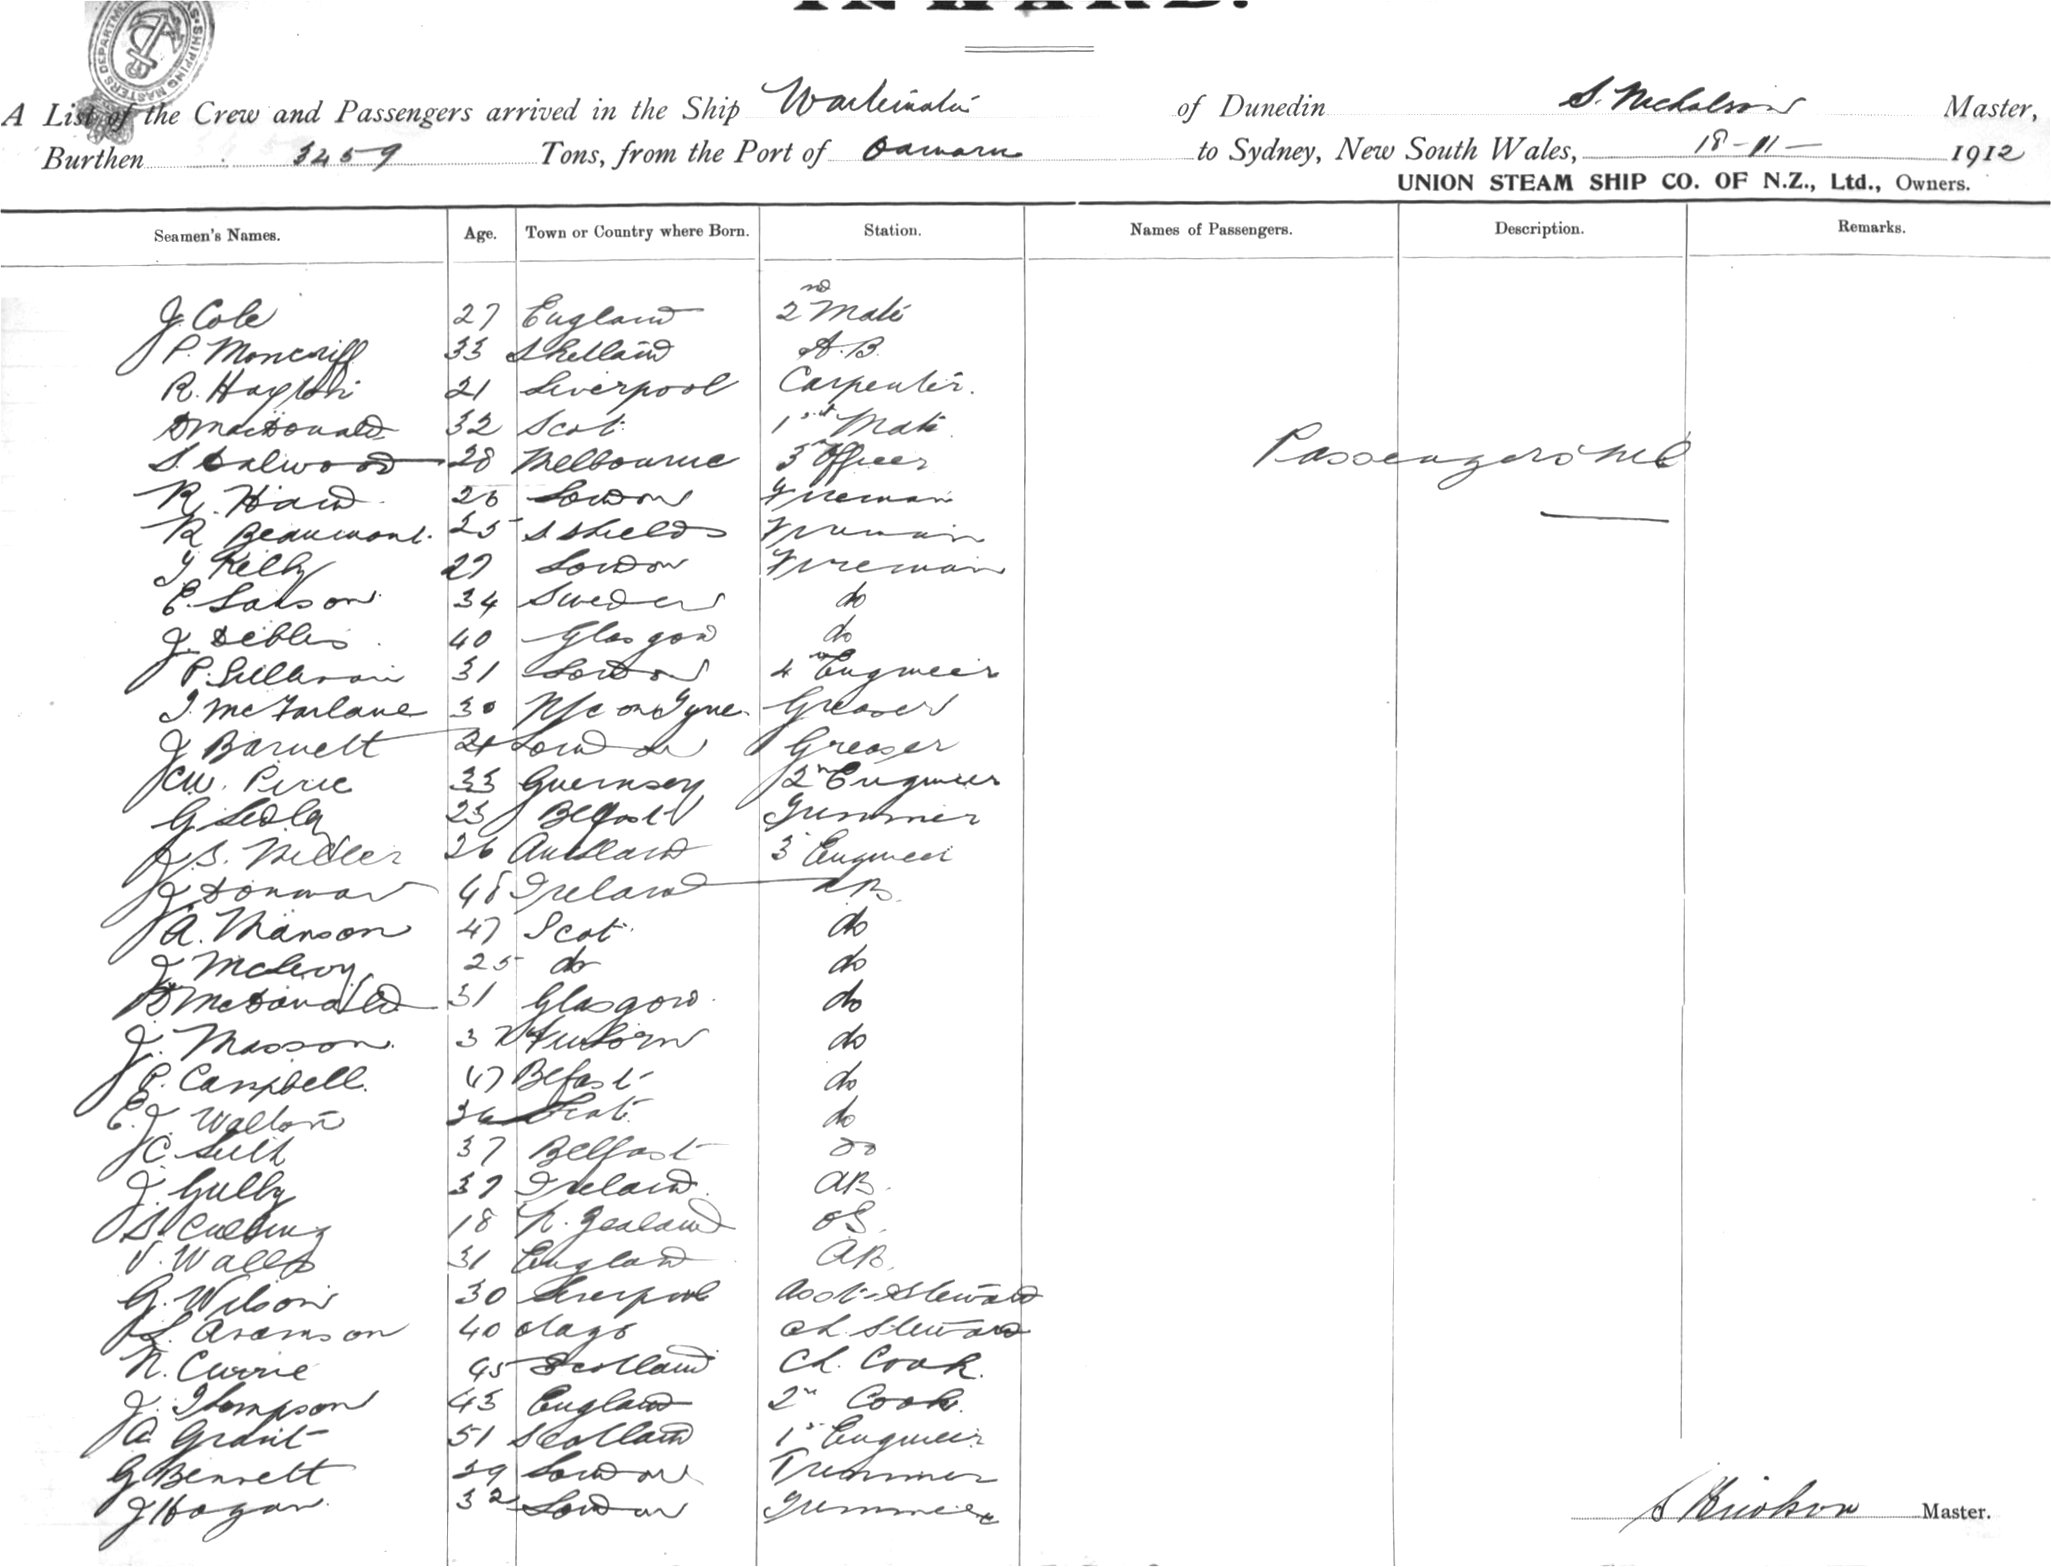 INWARD.
SHIPPING MASTERS DEPARTMENT
A List of the Crew and Passengers arrived in the Ship of Dunedin S. Nicholson Master,
Burthen 3459 Tons, from the Port of Oamaru to Sydney, New South Wales, 18-11- 1912
UNION STEAM SHIP CO. OF N.Z., Ltd., Owners.
Seamen's Names. Age. Town or Country where Born. Station. Names of Passengers. Description. Remarks.
J. Cole 27 England 2nd Mate
P. Moncriff 33 Shetland A.B.
R. 21 Liverpool Carpenter.
D MacDonald 32 Scot. 1st Mate
Passengers Nil
S. Dalwood 28 Melbourne 3 Officer
R. 26 London Fireman
R Beaumont. 25 S Shields Fireman
Kelly 27 London Fireman
E. Larson 34 Sweden do
J. 40 Glasgow do
P. Sullivan 31 London 4 Engineer
McFarlane 30 on Tyne Greaser
J Barnett London Greaser
CW. Pirie 33 Guernsey 2n Engineer
G 23 Belfast Trimmer
J.S. Miller 26 Auckland 3 Engineer
J 48 Ireland AB.
A. Manson 47 Scot. do
J McLevy 25 do do
D McDonald 31 Glasgow. do
J. Masson. do
P. Campbell. 47 Belfast do
E.J. Walton 36 Scot. do
C. 37 Belfast do
J. Gully 37 Ireland. AB.
S. 18 N. Zealand OS.
V. Walls 31 England AB.
G. Wilson 30 Liverpool Asst Steward
L. Aramson 40 ch. Steward
N. Currie 45 Scotland Ch. Cook.
J. Thompson 43 England 2n Cook.
A Grant 51 Scotland 1s Engineer
G Bennett 29 London Trimmer
J Hogan 32 London Trimmer
S Master.